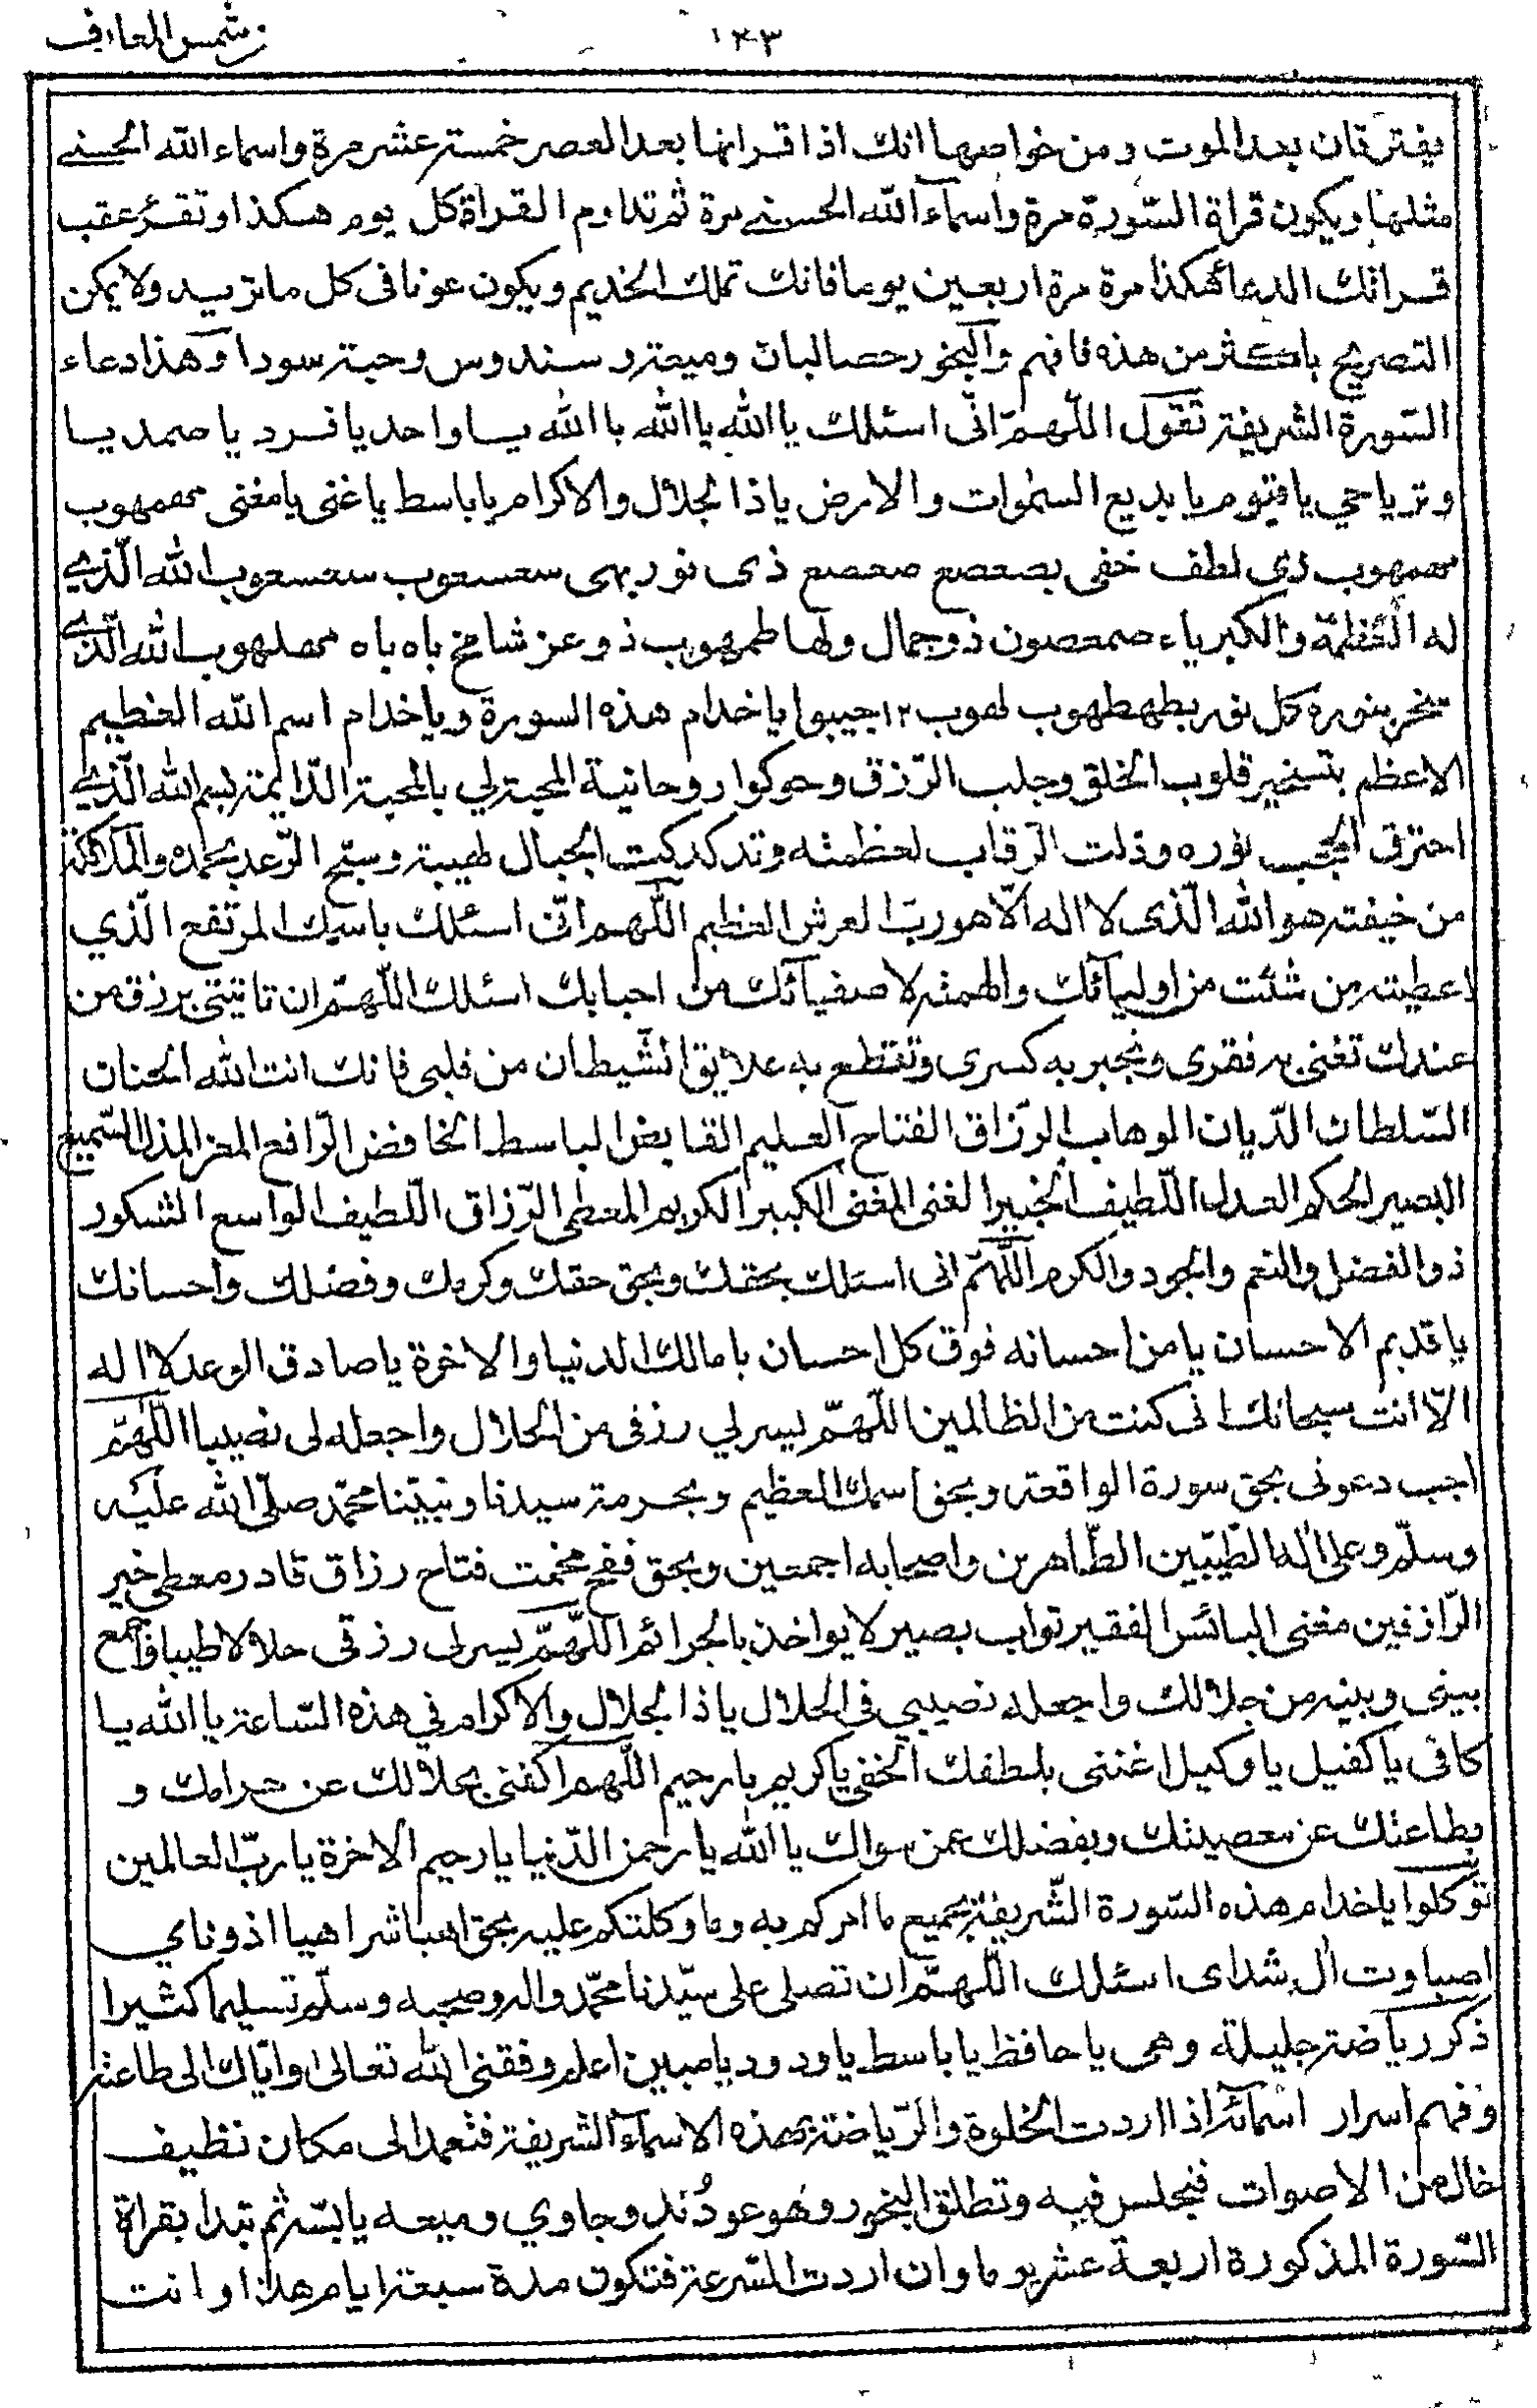 شمس المعارف
١٤٣
يفترقان بعد الموت ومن خواصها انك اذا قراتها بعد العصر خمسة عشر مرة واسماء الله الحسنے
مثلها ويكون قراة السّورة مرة واسماء الله الحسنے مرة ثم تداوم القراة كل يوم هكذا وتقرء عقب
قراتك الدعا هكذا مرة مرة اربعين يوما فانك تملك الخديم ويكون عونا فى كل ما تريد ولا يمكن
التصريح باكثر من هذه فافهم والبخور حصا لبان وميعة و سندروس وحبة سودا وهذا دعاء
السّورة الشريفة تقول اللّهمّ انّى اسئلك يا الله يا الله يا الله يا واحد يا فرد يا صمد يا
وتر يا حي يا قيوم يا بديع السموات والارض يا ذا الجلال والاكرام يا باسط يا غنى يا مغنى مهمهوب
مهمهوب ذى لطف خفى بصعصع صعصع ذى نور بهى سعسعوب سعسعوب الله الّذے
له العظمة والكبرياء صمعصون ذو جمال وبها طمهوب ذو عز شامخ باه باه الله الّذے
بنوره كل نور بطهطهوب لهوب ١٢ اجيبوا يا خدام هذه السورة ويا خدام اسم الله العظيم
الاعظم بتسخير قلوب الخلق وجلب الرّزق وحركوا روحانية المحبة لي بالمحبة الدّايمة بسم الله الّذے
احترق الحجب نوره وذلت الرقاب لعظمته وتدكدكت الجبال لهيبة وسبّح الرّعد بحمده والملائكة
من خيفته هو الله الّذى لا اله الّا هو ربّ العرش العظيم اللّهم انّى اسئلك باسمك المرتفع الّذي
اعطيته من شئت من اوليائك والهمته لاصفيائك من احبابك اسئلك اللّهمّ ان تاتينى برزق من
عندك تغنى به فقرى وتجبر به كسرى وتقطع به علايق الشّيطان من قلبى فانك انت الله الحنان
السّلطان الدّيان الوهاب الرزّاق الفتاح العليم القابض الباسط الخافض الرّافع المعز المذل السّميع
البصير الحكم العدل اللّطيف الخبير الغنى المغنى الكبير الكريم المعطى الرّزاق اللّطيف الواسع الشكور
ذو الفضل والنعم والجود والكرم اللّهمّ انى اسئلك بحقك وبحق حقك وكرمك وفضلك واحسانك
يا قديم الاحسان يا من احسانه فوق كل احسان يا مالك الدنيا والاخرة يا صادق الوعد لا اله
الّا انت سبحانك انى كنت من الظالمين اللّهمّ يسر لي رزقى من الحلال واجعله لى نصيبا اللّهمّ
اجب دعوتى بحق سورة الواقعة وبحق اسمك العظيم وبحرمة سيدنا ونبيّنا محمّد صلّى الله عليه
وسلّم وعلى اله الطّيّبين الطّاهرين واصحابه اجمعين وبحق فقج مخمت فتاح رزاق قادر معطى خير
الرّازقين مغنى البائس الفقير تواب بصير لا يواخذ بالجرائم اللّهمّ يسر لى رزقى حلالا طيبا واجمع
بينى وبينه من حلالك واجعله نصيبي فى الحلال يا ذا الجلال والاكرام في هذه السّاعة يا الله يا
كافى يا كفيل يا وكيل اغننى بلطفك الخفى يا كريم يا رحيم اللّهم اكفنى بحلالك عن حرامك و
بطاعتك عن معصيتك وبفضلك عمن سواك يا الله يا رحمن الدّنيا يا رحيم الاخرة يا ربّ العالمين
توكلوا يا خدام هذه السّورة الشّريفة بجميع ما امركم به وما وكلتكم عليه بحق اهيا شراهيا اذوناي
اصباوت ال شداى اسئلك اللّهمّ ان تصلى على سيّدنا محمّد واله وصحبه وسلّم تسليما كثيرا
ذكر رياضة جليلة وهى يا حافظ يا باسط يا ودود يا مبين اعلم وفقنى الله تعالى وايّاك الى طاعته
وفهم اسرار اسمائه اذا اردت الخلوة والرّياضة بهذه الاسماء الشريفة فتعمد الى مكان نظيف
خال من الاصوات فتجلس فيه وتطلق البخور وهو عود ند وجاوي وميعه يابسة ثم تبدا بقراة
السّورة المذكورة اربعة عشر يوما وان اردت السّرعة فتكون مدة سبعة ايام هذا وانت